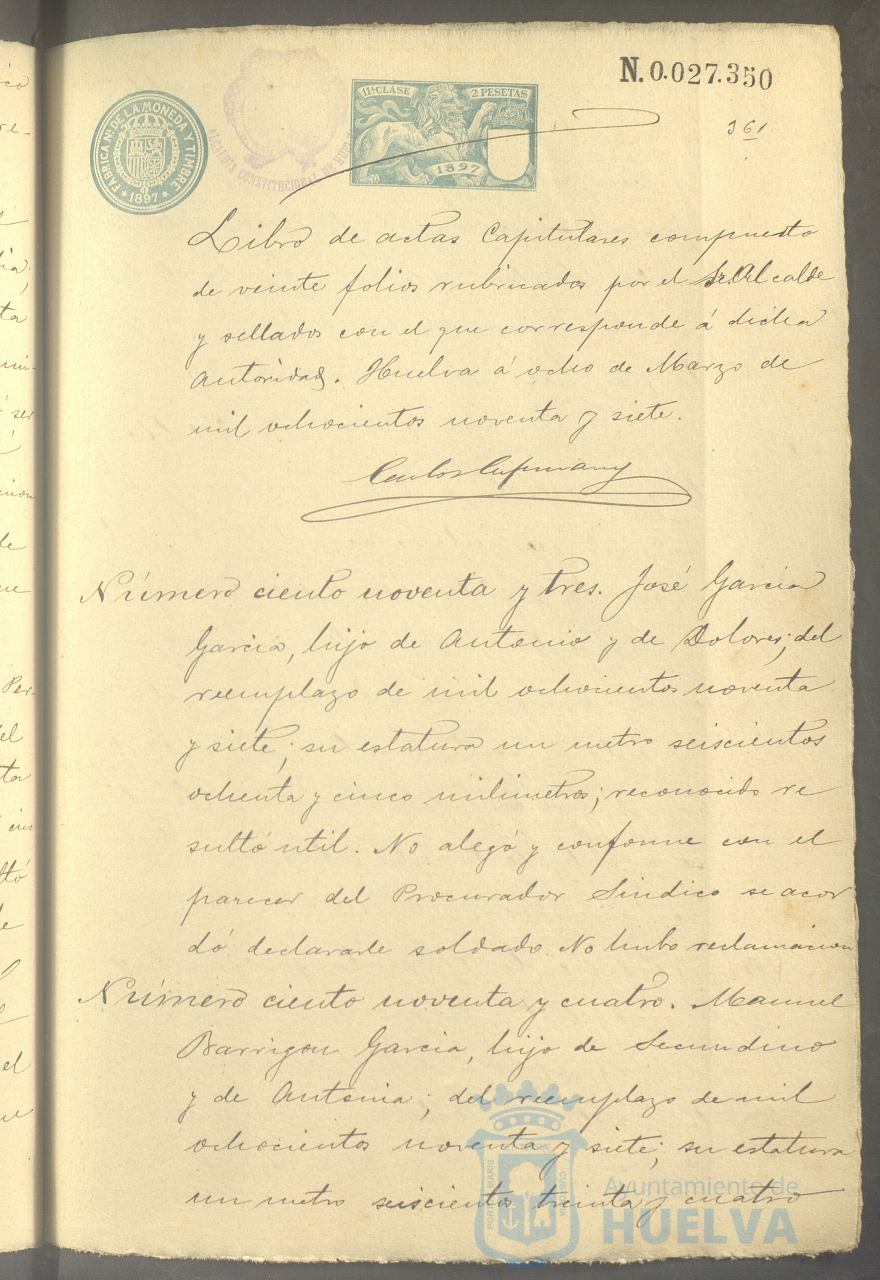 N. 0.027.350
361
FÁBRICA Nal. DE LA MONEDA Y TIMBRE
* 1897 *
ALCALDIA CONSTITUCIONAL DE HUELVA
11ª CLASE 2 PESETAS
1897
Libro de actas Capitulares compuesto
de veinte folios rubricados por el Sr. Alcalde
y sellados con el que corresponde á dicha
autoridad. Huelva á ocho de Marzo de
mil ochocientos noventa y siete.
Carlos
Número ciento noventa y tres. José Garcia
Garcia, hijo de Antonio y de Dolores; del
reemplazo de mil ochocientos noventa
y siete; su estatura un metro seiscientos
ochenta y cinco milimetros; reconocido re
sultó util. No alegó y conforme con el
parecer del Procurador Sindico se acor
dó declararle soldado. No hubo reclamacion
Número ciento noventa y cuatro. Manuel
Barrigon Garcia, hijo de Secundino
y de Antonia; del reemplazo de mil
ochocientos noventa y siete; su estatura
un metro seiscientos treinta y cuatro
PORTUS MARIS CUSTODIA
Ayuntamiento de
HUELVA